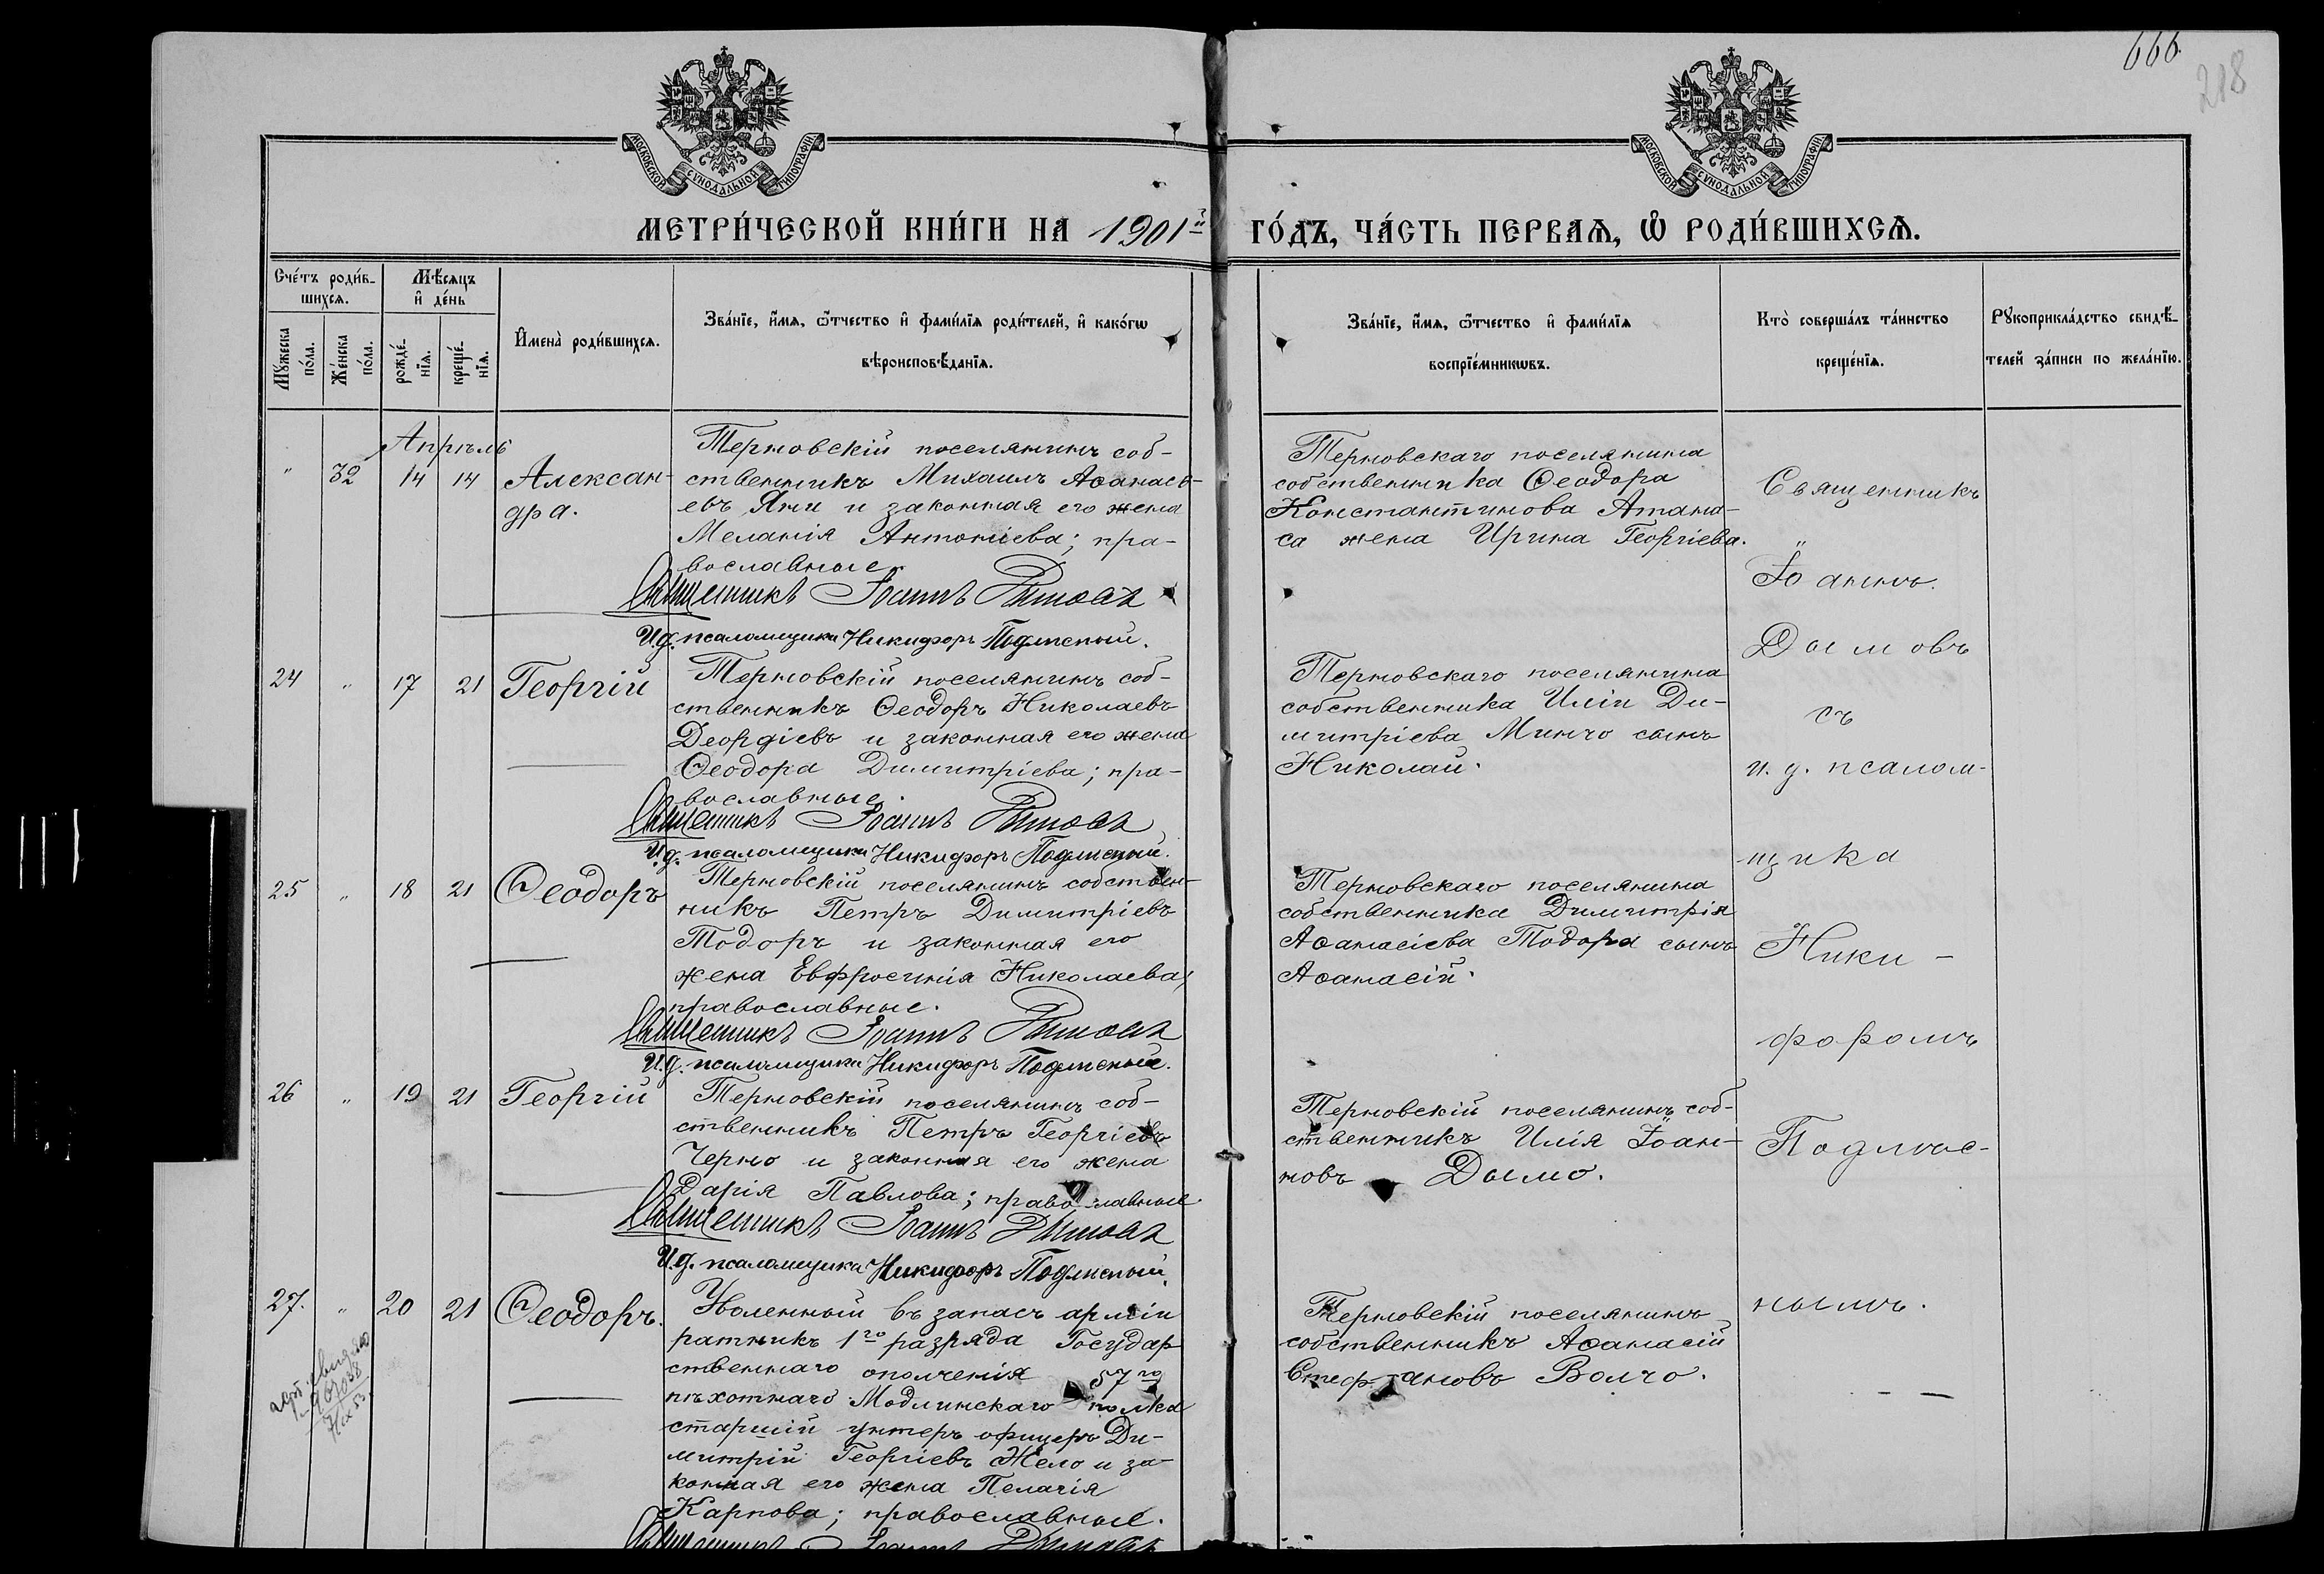 666.
218
МОСКОВСКОЙ СѴНОДАЛЬНОЙ ТИПОГРАФІИ.
МОСКОВСКОЙ СѴНОДАЛЬНОЙ ТИПОГРАФІИ.
МЕТРИ́ЧЕСКОЙ КНИ́ГИ НА 1901й ГО́ДЪ, ЧА́СТЬ ПЕРВАѦ, Ѡ РОДИ́ВШИХСѦ.
Сче́тъ роди́в-
шихсѧ.
Мꙋ́жеска по́ла.
Же́нска по́ла.
Мѣ́сѧцъ
и҆ де́нь
рожде́-
нїѧ.
креще́-
нїѧ.
И҆мена̀ роди́вшихсѧ.
Зва́нїе, и҆́мѧ, ѻ҆́тчество и҆ фами́лїѧ роди́телей, и҆ како́гѡ
вѣроисповѣ́данїѧ.
Зва́нїе, и҆́мѧ, ѻ҆́тчество и҆ фами́лїѧ
воспрїе́мникѡвъ.
Кто̀ соверша́лъ та́инство
креще́нїѧ.
Рꙋкоприкла́дство свидѣ́-
телей за́писи по жела́нїю.
Апрѣль
" 32 14 14 Алексан-
дра.
Терновскій поселянинъ соб-
ственникъ Михаилъ Аѳанась-
евъ Яни и законная его жена
Меланія Антоніева; пра-
вославные.
Священникъ Іоаннъ Дымовъ
И.д. псаломщика Никифоръ Подлисный.
Терновскаго поселянина
собственника Ѳеодора
Константинова Атана-
са жена Ирина Георгіева.
24 " 17 21 Георгій
Терновскій поселянинъ соб-
ственникъ Ѳеодоръ Николаевъ
Деордіевъ и законная его жена
Ѳеодора Димитріева; пра-
вославные.
Священникъ Іоаннъ Дымовъ
И.д. псаломщика Никифоръ Подлисный.
Терновскаго поселянина
собственника Иліи Ди-
митріева Минчо сынъ
Николай.
25 " 18 21 Ѳеодоръ
Терновскій поселянинъ собствен-
никъ Петръ Димитріевъ
Тодоръ и законная его
жена Евфросинія Николаева;
православные.
Священникъ Іоаннъ Дымовъ
И.д. псаломщика Никифоръ Подлисный.
Терновскаго поселянина
собственника Димитрія
Аѳанасіева Тодора сынъ
Аѳанасій.
26 " 19 21 Георгій
Терновскій поселянинъ соб-
ственникъ Петръ Георгіевъ
Черно и законная его жена
Дарія Павлова; православные
Священникъ Іоаннъ Дымовъ
И.д. псаломщика Никифоръ Подлисный.
Терновскій поселянинъ соб-
ственникъ Илія Іоан-
новъ Дымо.
27. " 20 21 Ѳеодоръ.
Уволенный въ запасъ арміи
ратникъ 1го разряда Государ
ственнаго ополченія 57го
пѣхотнаго Модлинскаго полка
старшій унтеръ офицеръ Ди-
митрій Георгіевъ Жело и за-
конная его жена Пелагія
Карпова; православные.
Священникъ Іоаннъ Дымовъ
Терновскій поселянинъ
собственникъ Аѳанасій
Стефановъ Волчо.
Священникъ
Іоаннъ
Дымовъ
съ
и. д. псалом-
щика
Ники-
форомъ
Подлис-
нымъ.